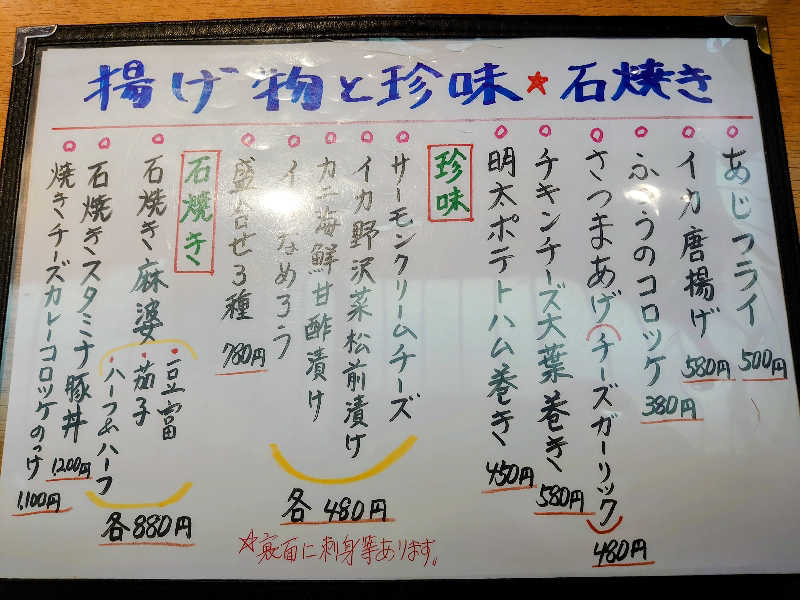 揚げ物と珍味★石焼き
あじフライ
500円
イカ唐揚げ
580円
ふつうのコロッケ
380円
さつまあげ(チーズガーリック)
480円
チキンチーズ大葉巻き
580円
明太ポテトハム巻き
450円
珍味
サーモンクリームチーズ
イカ野沢菜松前漬け
カニ海鮮甘酢漬け
なめろう
各480円
盛合せ3種
780円
石焼き
石焼き麻婆
・豆富
・茄子
・ハーフ&ハーフ
各880円
石焼きスタミナ豚丼
1,200円
焼きチーズカレーコロッケのっけ
1,100円
☆裏面に刺身等あります。